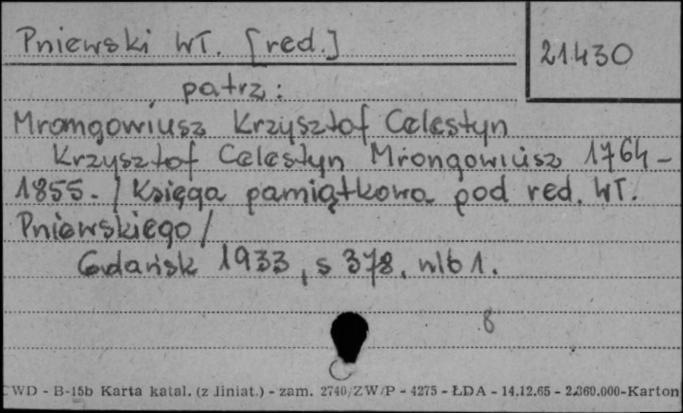 Pniewski Wł. [red.]
21430
patrz:
Mrongowiusz Krzysztof Celestyn
Krzysztof Celestyn Mrongowiusz 1764-
1855. /Księga pamiątkowa pod red. Wł.
Pniewskiego/
Gdańsk 1933, s 378, nlb 1.
8
CWD - B-15b Karta katal. (z liniat.) - zam. 2740/ZW/P - 4275 - ŁDA - 14.12.65 - 2.360.000-Karton